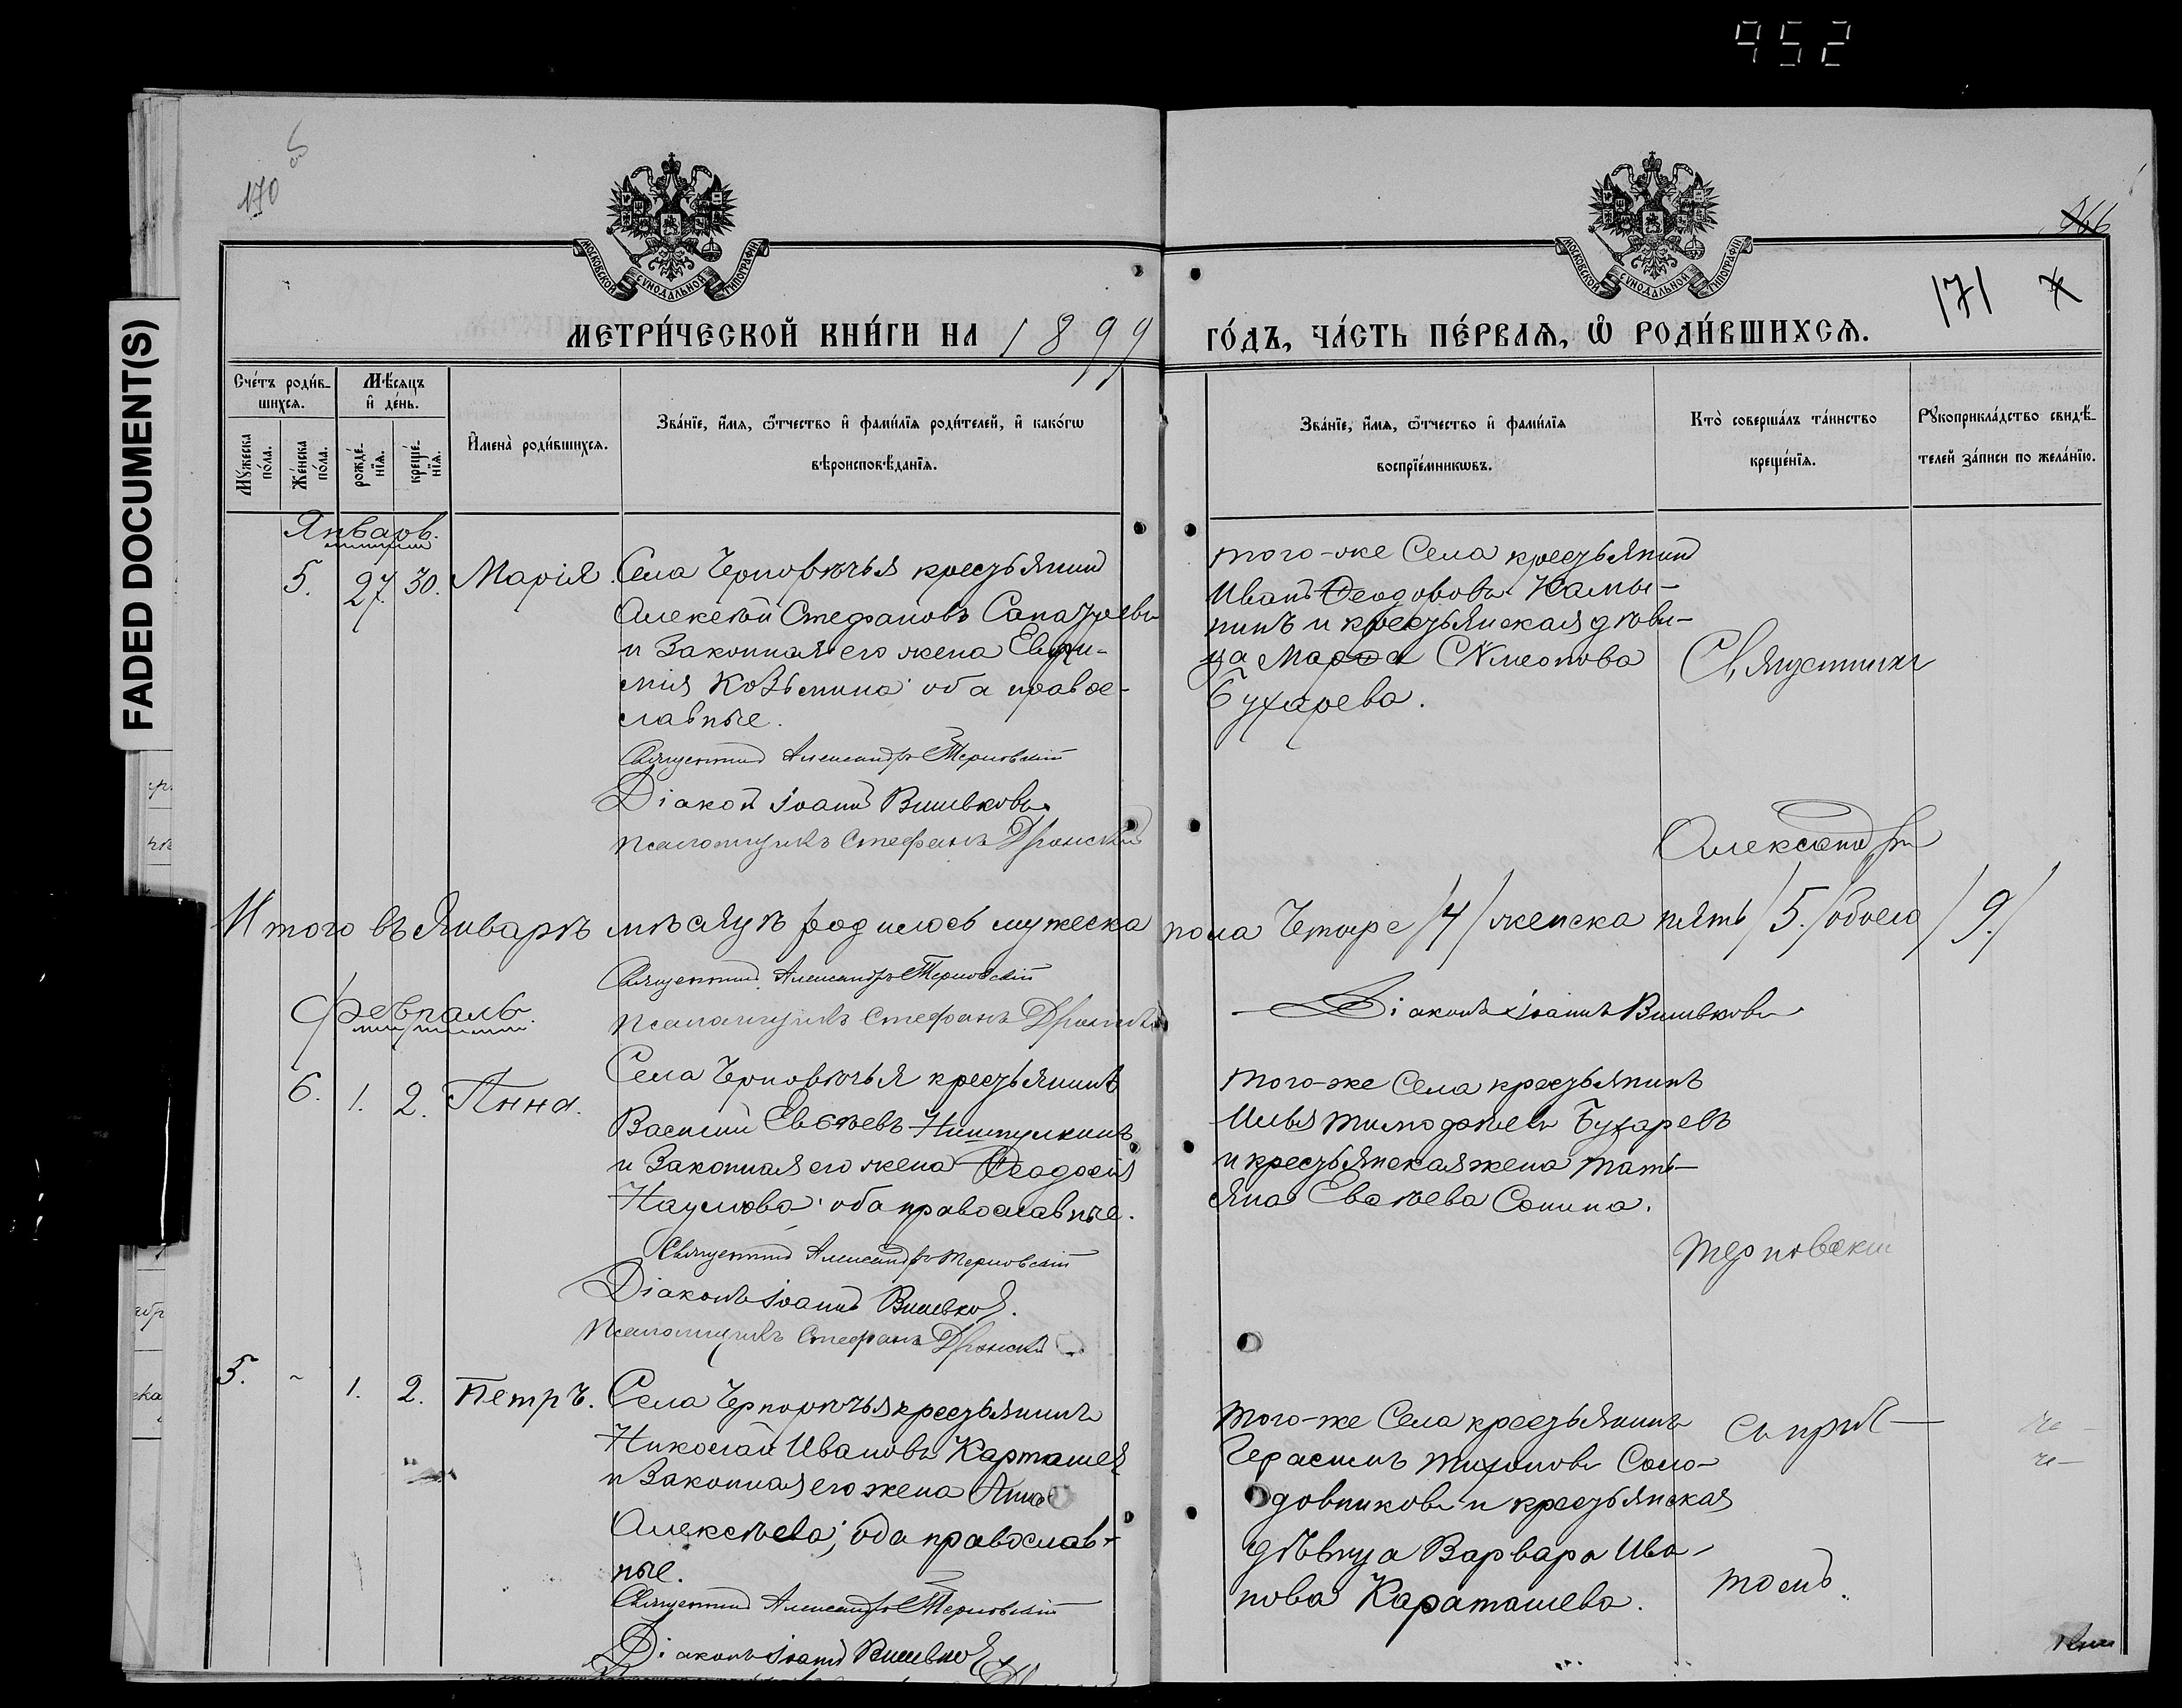 952
FADED DOCUMENT(S)
170
166
171
МОСКОВСКОЙ СѴНОДАЛЬНОЙ ТИПОГРАФІИ
МОСКОВСКОЙ СѴНОДАЛЬНОЙ ТИПОГРАФІИ
МЕТРИ́ЧЕСКОЙ КНИ́ГИ НА 1899 ГО́ДЪ, ЧА́СТЬ ПЕ́РВАѦ, Ѡ РОДИ́ВШИХСѦ.
Сче́тъ роди́в-
шихсѧ.
Мѣ́сѧцъ
и де́нь.
Му́жеска по́ла.
Же́нска по́ла.
рожде́-
нїѧ.
креще́-
нїѧ.
Имена̀ роди́вшихсѧ.
Зва́нїе, и́мѧ, ѻ́тчество и фами́лїѧ роди́телей, и како́гѡ
вѣроисповѣ́данїѧ.
Зва́нїе, и́мѧ, ѻ́тчество и фами́лїѧ
воспрїе́мникѡвъ.
Кто̀ соверша́лъ та́инство
креще́нїѧ.
Рукоприкла́дство свидѣ́-
телей за́писи по жела́нїю.
Январь.
5. 27. 30. Марія.
Села Чернорѣчья крестьянинъ
Алексѣй Стефановъ
и законная его жена Евфи-
мія Козьмина; оба право-
славные.
Священникъ Александръ Терновскій
Діаконъ Іоаннъ
Псаломщикъ Стефанъ
того-же села крестьянинъ
Иванъ Ѳеодоровъ Камы-
нинъ и крестьянская дѣви-
ца Марѳа Симеонова
Бухарева.
Священникъ
Александръ
Итого въ Январѣ мѣсяцѣ родилось мужеска пола четыре /4/ женска пять /5./ обоего /9./
Священникъ Александръ Терновскій
Псаломщикъ Стефанъ
Діаконъ Іоаннъ
Февраль.
6. 1. 2. Анна.
Села Чернорѣчья крестьянинъ
Василій Евсѣевъ
и законная его жена Ѳеодосія
Наумова; оба православные.
Священникъ Александръ Терновскій
Діаконъ Іоаннъ
Псаломщикъ Стефанъ
того-же села крестьянинъ
Илья Тимоѳеевъ Бухаревъ
и крестьянская жена Тать-
яна Евсѣева Сонина.
Терновскій
5. - 1. 2. Петръ.
Села Чернорѣчья крестьянинъ
Николай Ивановъ Карташевъ
и законная его жена Анна
Алексѣева; оба православ-
ные.
Священникъ Александръ Терновскій
Діаконъ Іоаннъ
того-же села крестьянинъ
Герасимъ Тихоновъ Соло-
довниковъ и крестьянская
дѣвица Варвара Ива-
нова Караташева.
съ прич-
томъ.